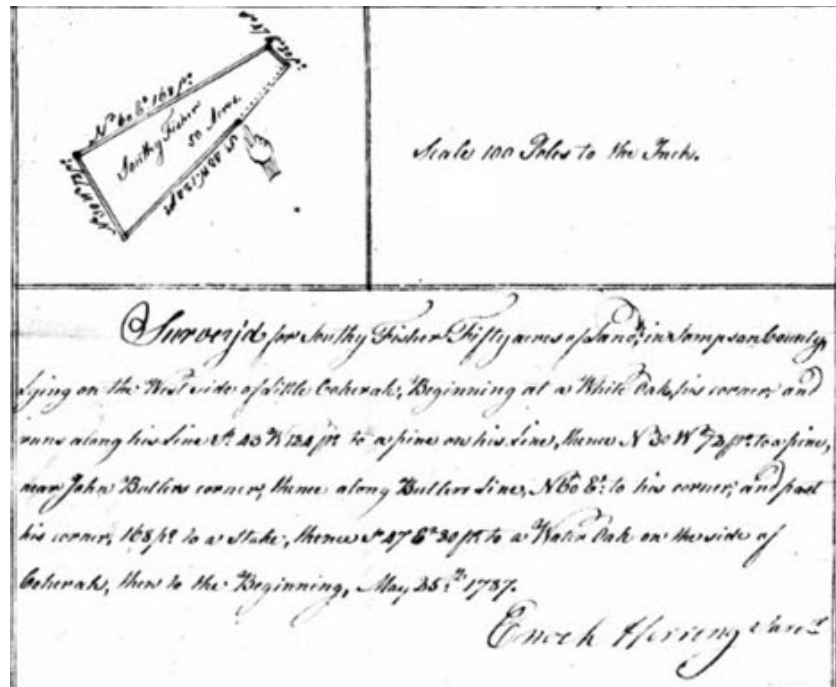 N 60 E 168 po.
Southy Fisher
50 Acres
S 43 W 124 po
N 30 W 72 po
Scale 100 Poles to the Inch.
Survey'd for Southy Fisher Fifty acres of Land, in Sampson County,
lying on the West side of Little Coherah, Beginning at a White Oak, his corner, and
runs along his line So. 43 W 124 po. to a pine on his line, thence N 30 Wt 72 po. to a pine,
near John Butlers corner; thence along Butlers line, N 60 Et. to his corner; and past
his corner, 168 po. to a Stake, thence So 47 Et 20 po to a Water Oak on the side of
Coherah, then to the Beginning, May 25th. 1787.
Enoch Herring